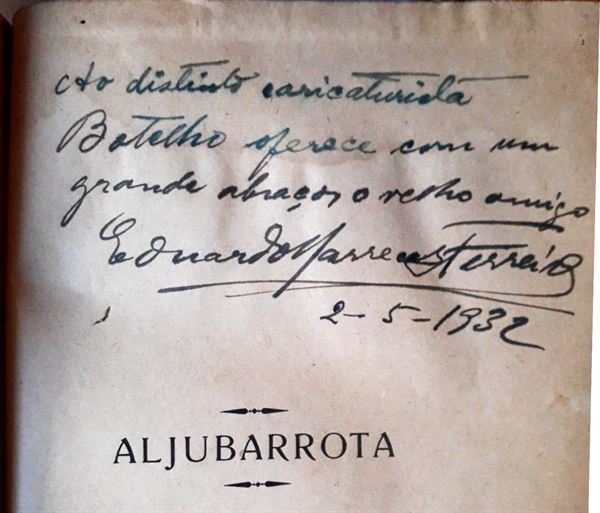 Ao distinto caricaturista
Botelho oferece com um
grande abraço, o velho amigo
Eduardo Marrecas Ferreira
2-5-1932
ALJUBARROTA